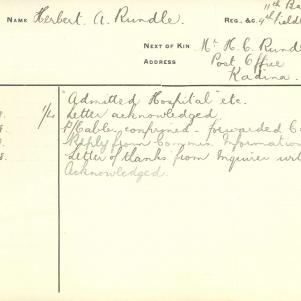 11th Ba
NAME Herbert A. Rundle. REG. &C. 4th Field
NEXT OF KIN Mr H. C. Rund
ADDRESS Post Office
Kadina.
"Admitted Hospital" etc.
Letter acknowledged.
P/Cables confirmed - forwarded C
Reply from Commis. Information
Letter of thanks from Inquirer
Acknowledged.